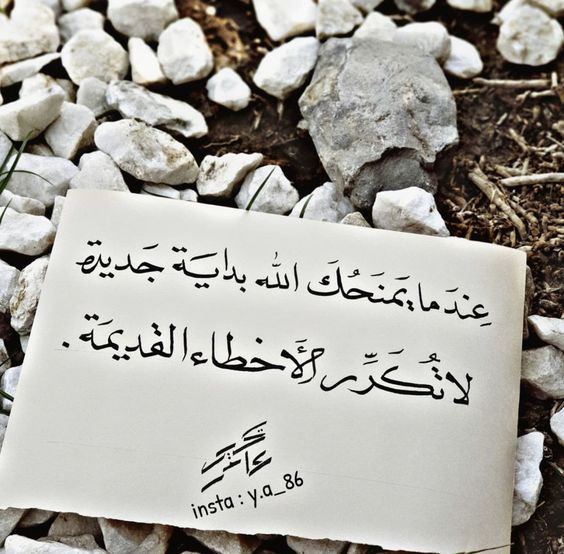 عِندَما يَمنَحُكَ الله بدايَة جَديدة
لا تُكَرِّر الأَخطاء القَديمَة .
insta : y.a_86